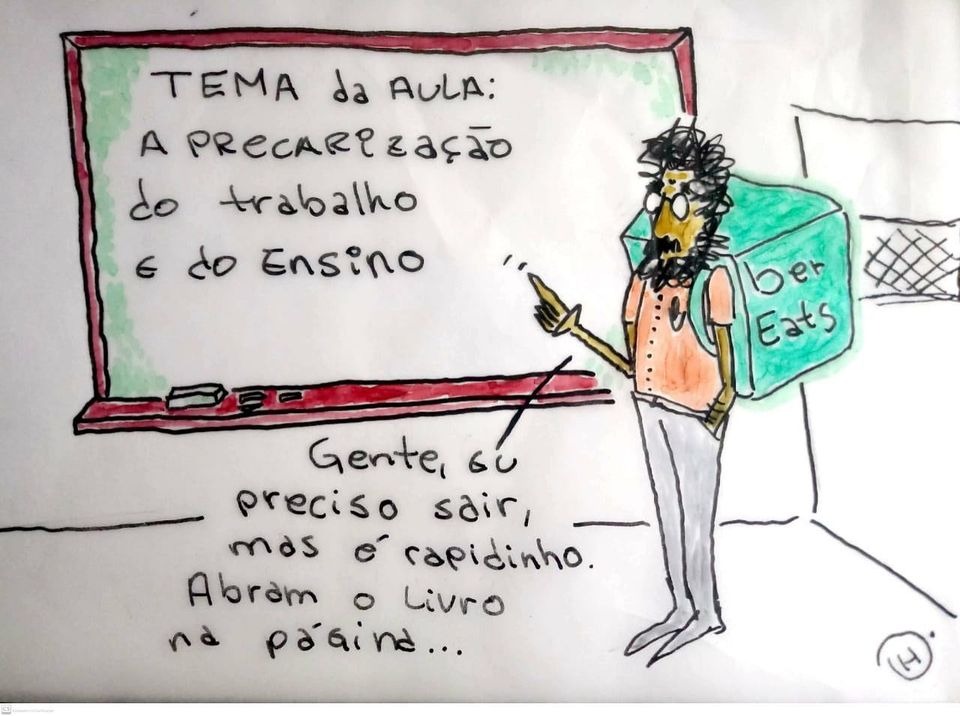 TEMA da AULA:
A PRECARIZAÇÃO
do trabalho
e do Ensino
ber
Eats
Gente, eu
preciso sair,
mas é rapidinho.
Abram o Livro
na página...
H